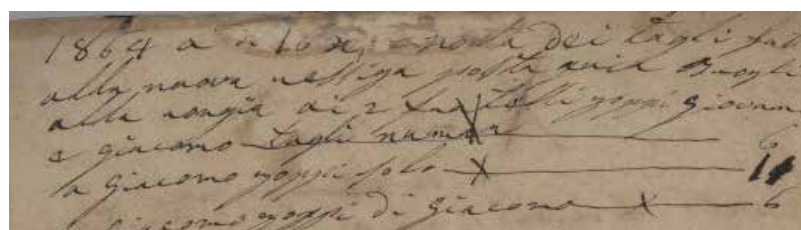 1864 a di 10 nota dei tagli fat
alla nuova ressiga posta
alla rongia ai 2 fratelli zoppi giovan
e giacomo tagli numar 6
a giacomo zoppi solo 11
giacomo zoppi di giacomo 6